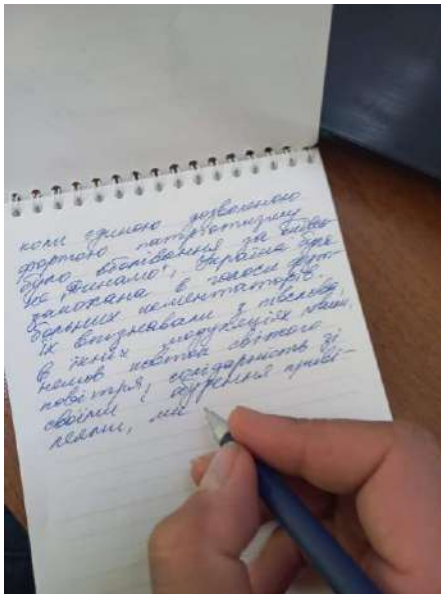 коли єдиною дозволеною
формою патріотизму
було вболівання за київсь
ке „Динамо", Україна була
захована в голоси фут-
больних коментаторів.
їх впізнавали з півслова,
в їхніх модуляціях
немов ковток свіжого
повітря, солідарність зі
своїми і обурення приві-
леями, ми